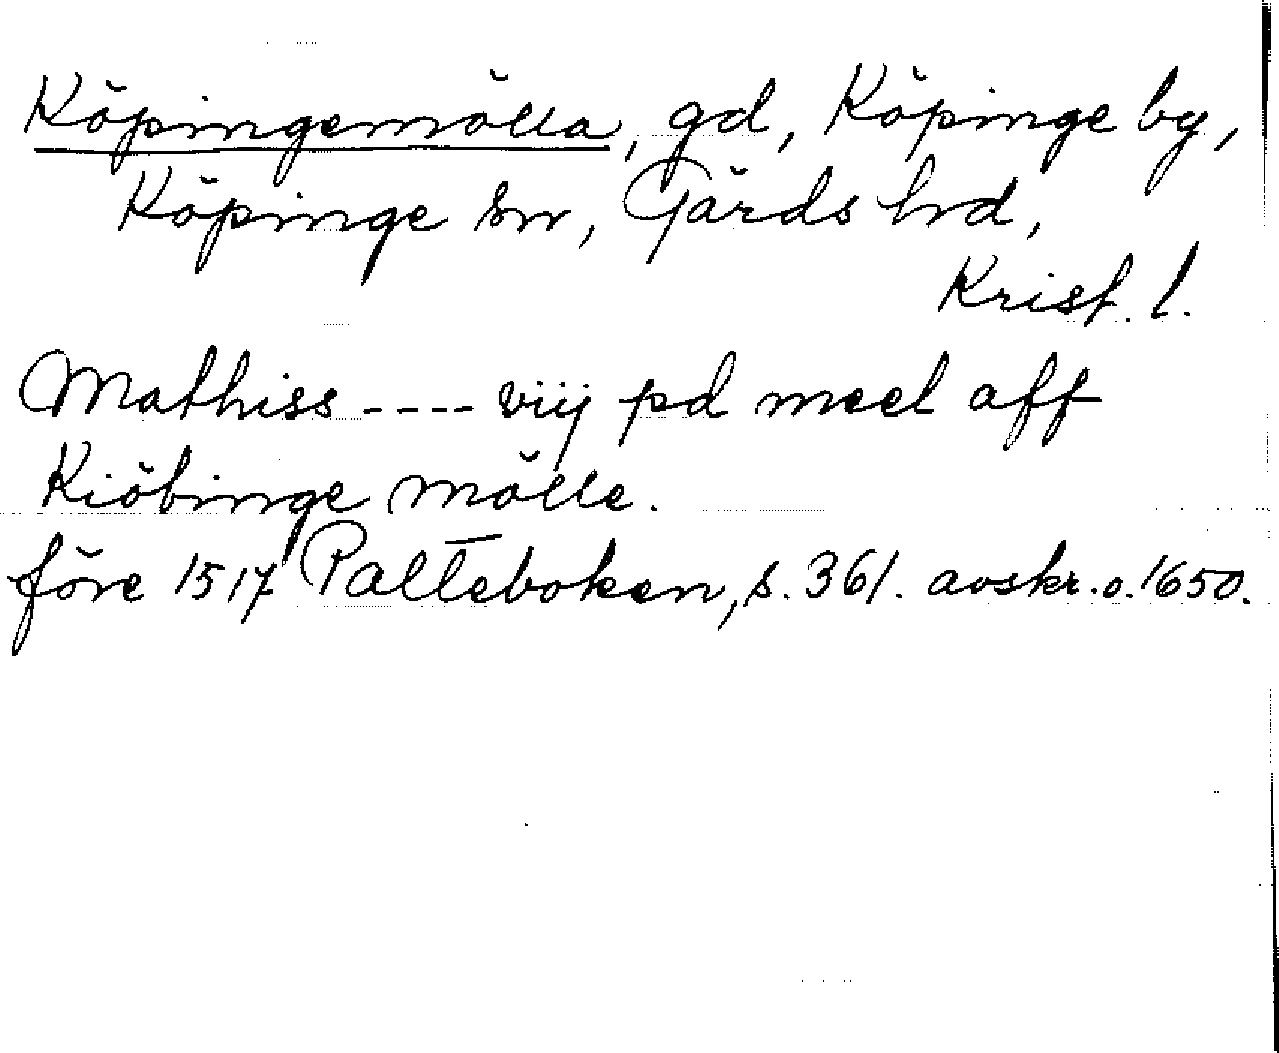 Köpingemölla, gd, Köpinge by,
Köpinge sn, Gärds hd,
Krist. l.
Mathiss ---- viij pd meel aff
Kiöbinge mölle.
före 1517 Palteboken, s. 361. avskr. o. 1650.